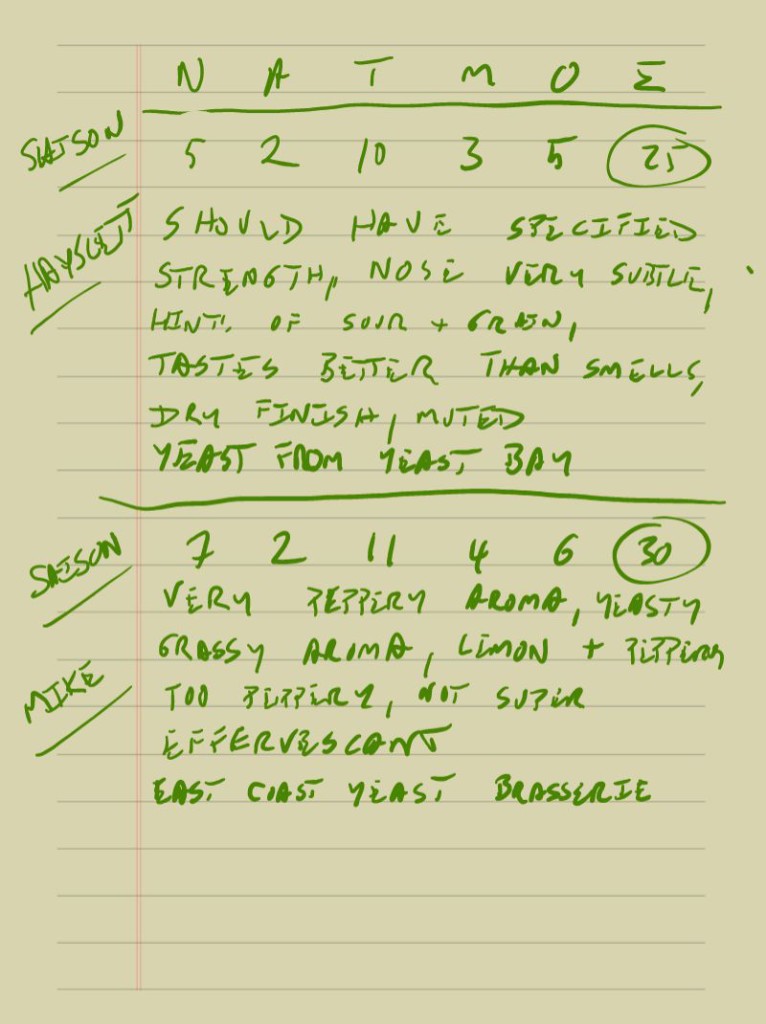 N A T M O Σ
SAISON 5 2 10 3 5 25
HAYSLETT SHOULD HAVE SPECIFIED
STRENGTH, NOSE VERY SUBTLE,
HINT OF SOUR + GREEN,
TASTES BETTER THAN SMELLS,
DRY FINISH, MUTED
YEAST FROM YEAST BAY
SAISON 7 2 11 4 6 30
VERY PEPPERY AROMA, YEASTY
GRASSY AROMA, LEMON + PEPPERY
MIKE TOO PEPPERY, NOT SUPER
EFFERVESCANT
EAST COAST YEAST BRASSERIE